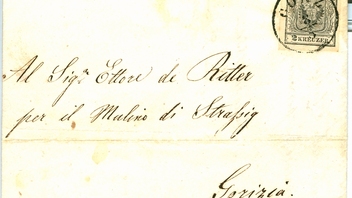 2 KREUZER
Al Sigr. Ettore de Ritter
per il Mulino di Strassig
Gorizia.